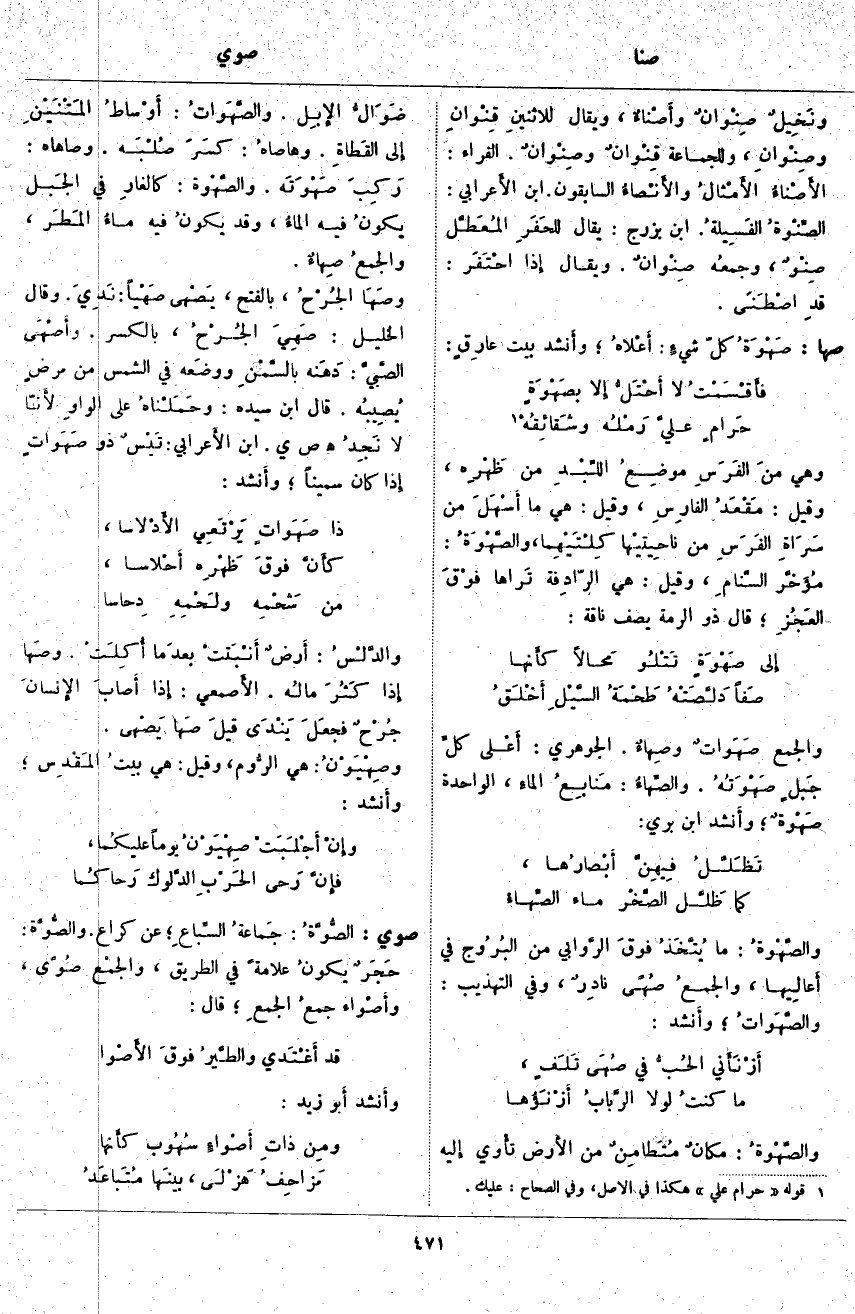 صنا
صوي
ونَخِيلٌ صِنْوانٌ وأَصْناءٌ ، ويقال للاثنين قِنْوانِ
وصِنْوانِ ، وللجماعة قِنْوانٌ وصِنْوانٌ . الفراء :
الأَصْناءُ الأَمْثالُ والأَنْصاءُ السابقون . ابن الأعرابي :
الصِّنْوةُ الفَسِيلةُ . ابن بزرج : يقال للحَفَر المُعَطَّل
صِنْوٌ ، وجمعُه صِنْوانٌ . ويقال إذا احْتَفَر :
قد اصْطَنَى .
صها : صَهْوَةُ كلِّ شيءٍ : أَعْلاهُ ؛ وأَنشد بيت عارِقٍ :
فأَقْسَمْتُ لا أَحْتَلُّ إلا بصَهْوَةٍ
حَرامٍ عليَّ رَمْلُه وشَقائِقُهْ١
وهي منَ الفَرَسِ موضِعُ اللِّبْدِ من ظَهْرِه ،
وقيل : مَقْعَدُ الفارِسِ ، وقيل : هي ما أَسْهَلَ من
سَرَاةِ الفَرَسِ من ناحِيتيْها كِلْتَيْهِما، والصَّهْوَةُ :
مُؤَخَّرُ السَّنامِ ، وقيل : هي الرّادِفة تَراها فوقَ
العَجُزِ ؛ قال ذو الرمة يصف ناقة :
إلى صَهْوَةٍ تَتْلُو مَحالاً كأَنها
صَفاً دَلَّصَتْهُ طَحْمَةُ السَّيْلِ أَخْلَقُ
والجمع صَهَواتٌ وصِهاءٌ . الجوهري : أَعْلى كلِّ
جَبَلٍ صَهْوَتُهُ . والصِّهاءُ : مَنابِعُ الماءِ ، الواحدة
صَهْوةٌ ؛ وأَنشد ابن بري :
تَظَلَّلُ فِيهِنَّ أَبْصارُها ،
كما ظَلَّلَ الصَّخْرَ ماء الصِّهاءْ
والصَّهْوةُ : ما يُتَّخَذُ فوقَ الرَّوابي من البُرُوج في
أَعالِيها ، والجمعُ صُهًى نادِرٌ ، وفي التهذيب :
والصَّهَواتُ ؛ وأَنشد :
أَزْنَأَني الحُبُّ في صُهَى تَلَفٍ ،
ما كنتُ لولا الرَّبابُ أَزْنَؤُها
والصَّهْوةُ : مكانٌ مُتَطامِنٌ من الأرض تأْوي إليه
١ قوله « حرام علي » هكذا في الاصل، وفي الصحاح : عليك .
ضَوَالُّ الإِبِل . والصَّهَواتُ : أَوْساطُ المَتْنَيْنِ
إلى القَطاةِ . وهاصاهُ : كسَرَ صُلْبَه . وصاهاه :
رَكِبَ صَهْوَتَه . والصَّهْوة : كالغارِ في الجَبَل
يكونُ فيه الماءُ ، وقد يكونُ فيه ماءُ المَطَر ،
والجمعُ صِهاءٌ .
وصَهَا الجُرْحُ ، بالفتح ، يَصْهَى صَهْياً : نَدِيَ . وقال
الخليل : صَهِيَ الجُرْحُ ، بالكسر . وأَصْهَى
الصَّبيَّ : دَهَنَه بالسَّمْنِ ووضَعَه في الشمس من مرضٍ
يُصِيبُه . قال ابن سيده : وحَمَلْناهُ على الواوِ لأَنَّا
لا نَجِدُ ه ص ي . ابن الأعرابي : تَيْسٌ ذو صَهَواتٍ
إذا كان سميناً ؛ وأَنشد :
ذا صَهَواتٍ يَرْتَعِي الأَدْلاسا ،
كأَنَّ فوقَ ظَهْرِه أَحْلاسا ،
من شَحْمِه ولَحْمِهِ دِحاسا
والدَّلْسُ : أَرضٌ أَنْبَتَتْ بعدَما أُكِلَتْ . وصَها
إذا كَثُرَ مالُه . الأصمعي : إذا أَصابَ الإنسانَ
جُرْحٌ فجعَلَ يَنْدَى قيلَ صَها يَصْهى .
وصِهْيَوْنُ : هي الرُّوم، وقيل : هي بيتُ المَقْدِس ؛
وأَنشد :
وإنْ أَجْلَبَتْ صِهْيَوْنُ يوماً عليكُما،
فإنَّ رَحى الحَرْبِ الدَّلوكَ رَحاكُما
صوي : الصُّوَّةُ : جَماعةُ السِّباعِ ؛ عن كراع . والصُّوَّةُ :
حَجَرٌ يكونُ علامةً في الطريق ، والجمْع صُوًى ،
وأَصْواء جمعُ الجمعِ ؛ قال :
قد أَغْتَدي والطَّيْرُ فوقَ الأَصْوا
وأَنشد أَبو زيد :
ومِن ذاتِ أَصْواءٍ سُهُوبٍ كأَنها
مَزاحِفُ هَزْلى ، بينَها مُتَباعَدُ
٤٧١